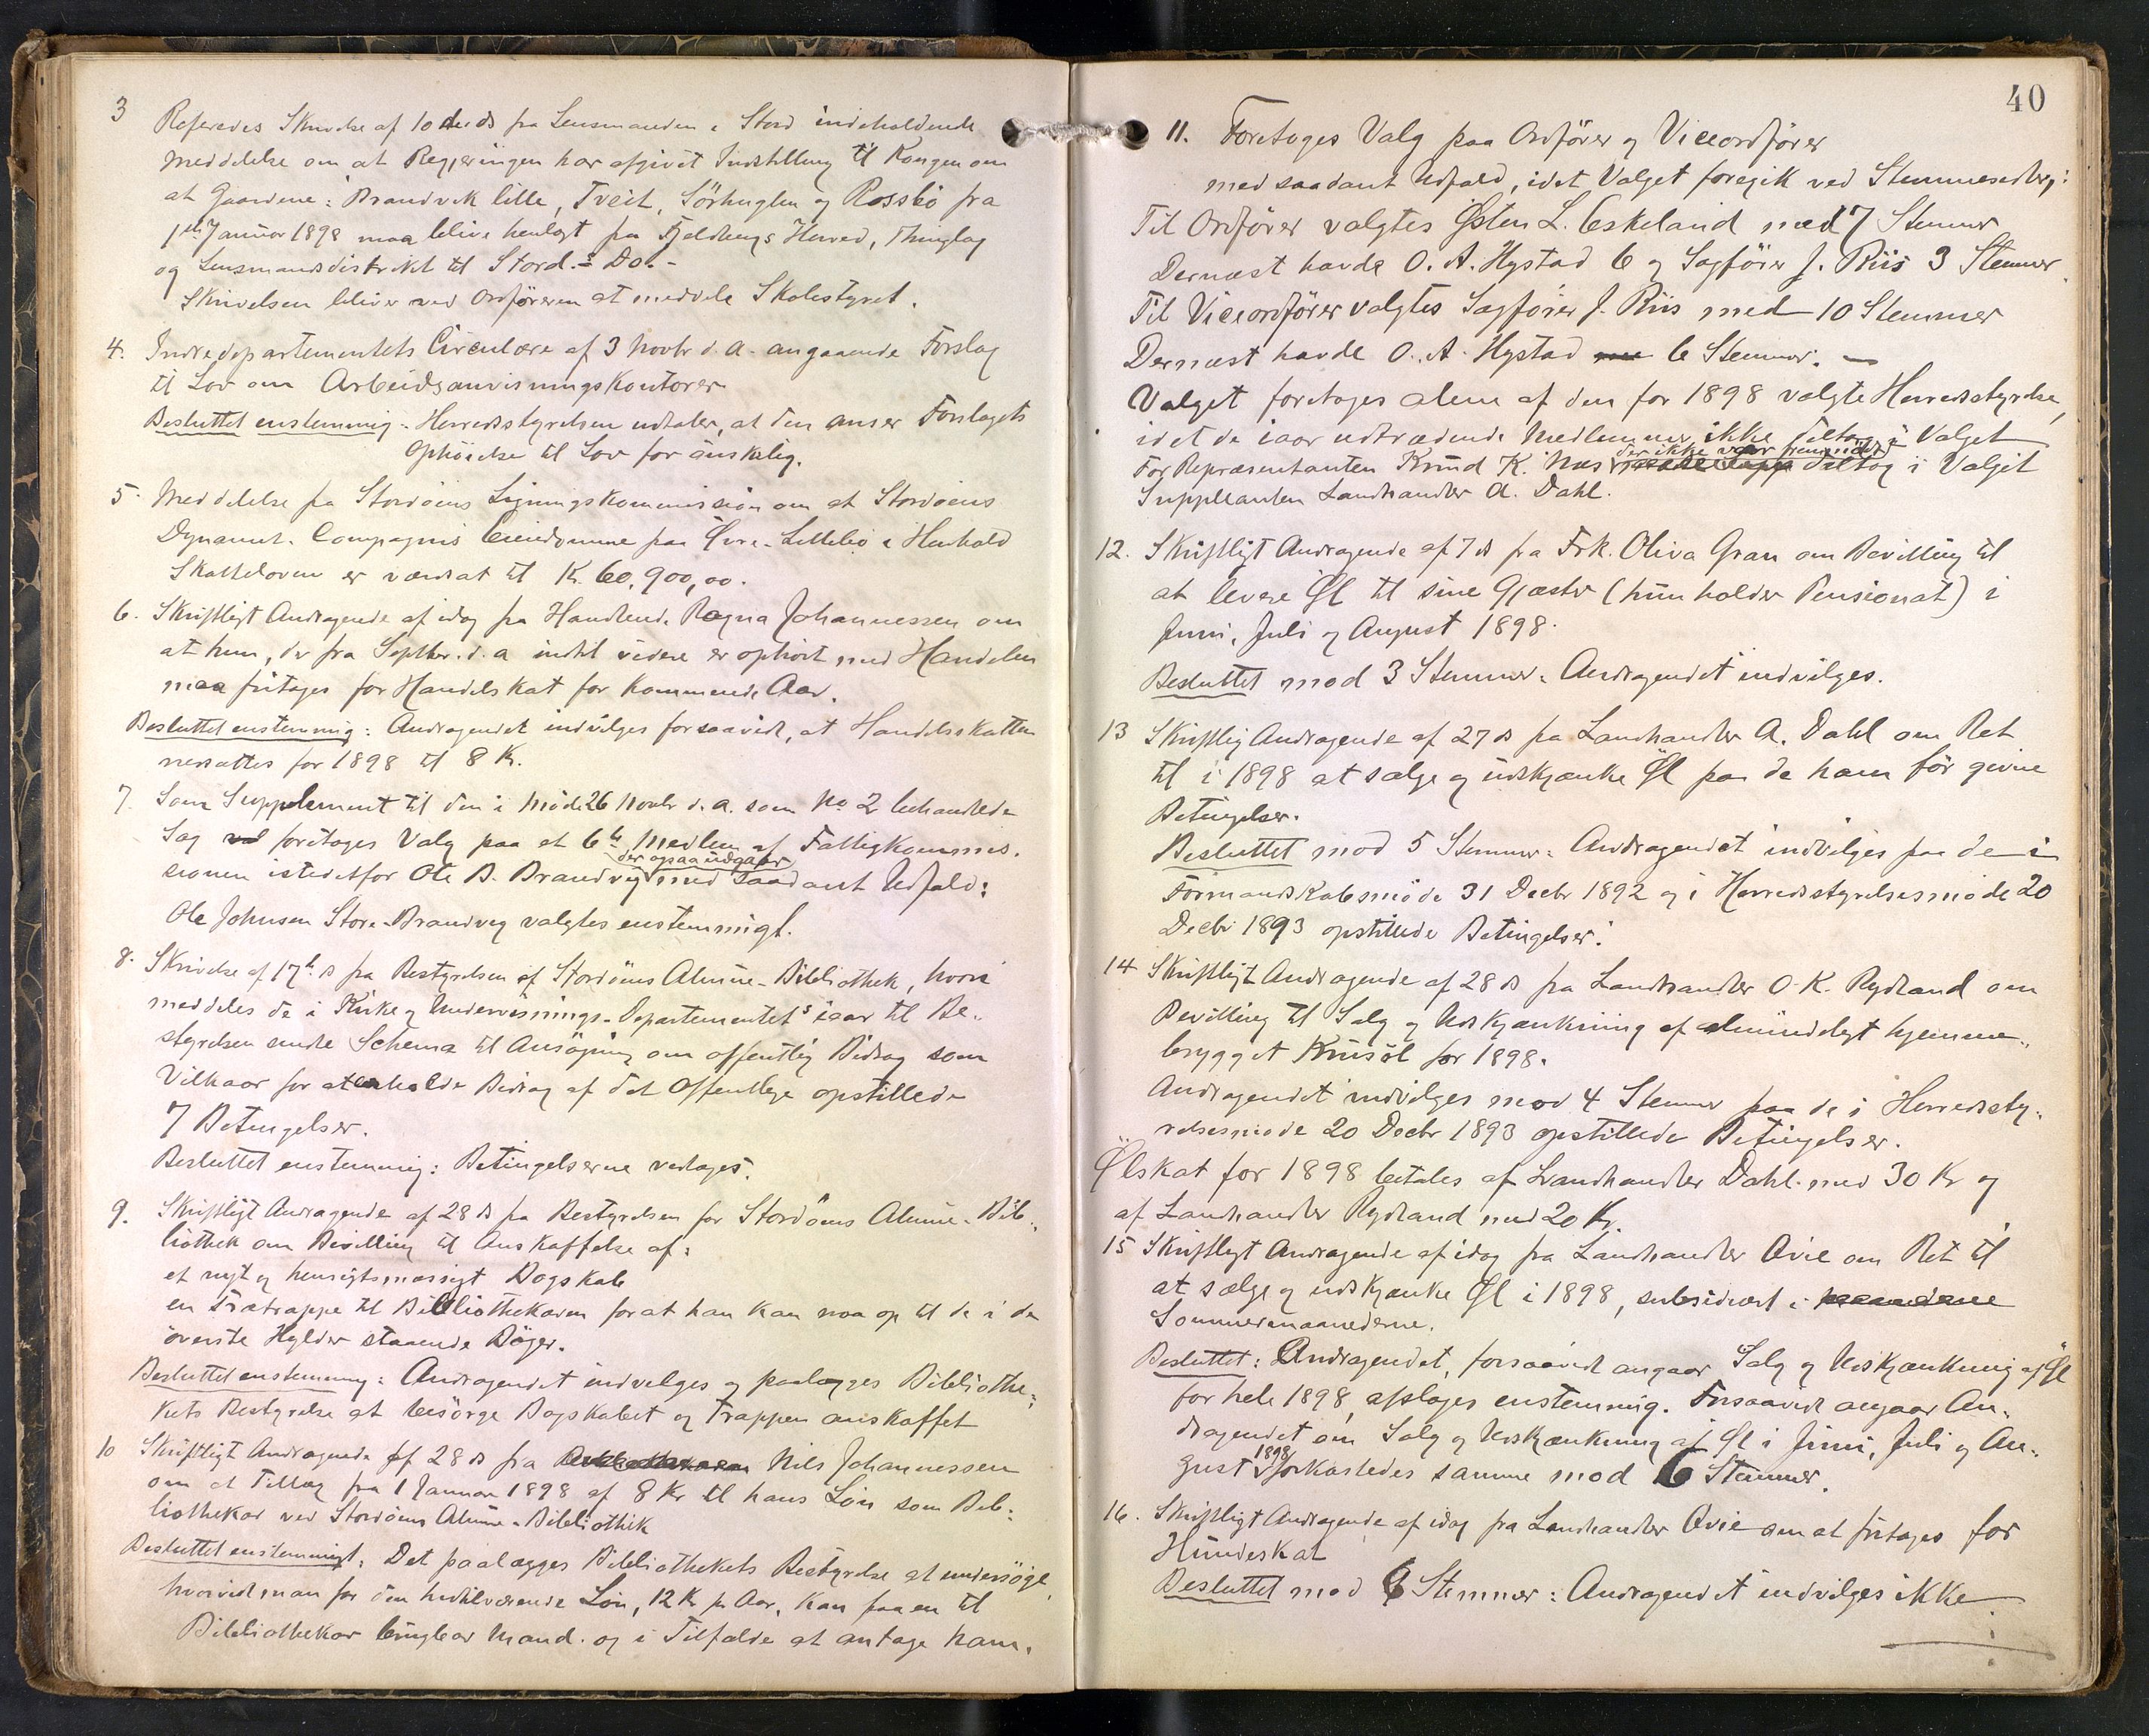 3 Referedes Skrivelse af 10de ds fra Lensmanden i Stord indeholdende
Meddelelse om at Regjeringen har afgivet Indstilling til Kongen om
at Gaardene: Brandvik lille, Tveit, Sörhuglen og Rossbö fra
1ste Januar 1898 maa blive henlagt fra Fjeldbergs Herred, Thinglag
og Lensmandsdistrikt til Stord ÷ Do. -
Skrivelsen bliver ved Ordföreren at meddele Skolestyret.
4. Indredepartementets Circulære af 3 Novbr d. a. angaaende Forslag
til Lov om Arbeidsanvisningskontorer
Besluttet enstemmig: Herredsstyrelsen udtaler, at den anser Forslagets
Ophöielse til Lov for önskelig.
5. Meddelelse fra Stordöens Ligningskommission om at Stordöens
Dynamit-Compagnis Eiendomme paa Övre-Lillebö i Henhold
Skatteloven er værdsat til Kr. 60,900,00.
6. Skriftligt Andragende af idag fra Handlende Ragna Johannessen om
at hun, der fra Septbr. d. a indtil videre er ophört med Handelen
maa fritages for Handelskat for kommende Aar.
Besluttet enstemmig: Andragendet indvilges forsaavidt, at Handelsskatten
nedsattes for 1898 til 8 Kr.
7. Som Supplement til den i Möde 26 Novbr d. a. som No 2 behandlede
Sag foretoges Valg paa et 6te Medlem af Fattigkommis-
der ogsaa udgaar
sionen istedetfor Ole B. Brandvig med saadant Udfald:
Ole Johnsen Store-Brandvig valgtes enstemmigt.
8. Skrivelse af 17de ds fra Bestyrelsen af Stordöens Almue-Bibliothek, hvori
meddeles de i Kirke og Undervisnings-Departementets iaar til Be-
styrelsen sendte Schema til Ansögning om offentlig Bidrag som
Vilkaar for at erholde Bidrag af det Offentlige opstillede
7 Betingelser.
Besluttet enstemmig: Betingelserne vedtages.
9. Skriftligt Andragende af 28 ds fra Bestyrelsen for Stordöens Almue-Bib-
liothek om Bevilling til Anskaffelse af:
et nyt og hensigtsmæssigt Bogskab
en Trætrappe til Bibliothekaren forat han kan naa op til de i de
överste Hylder staaende Böger.
Besluttet enstemmig: Andragendet indvilges og paalægges Bibliothe-
kets Bestyrelse at besörge Bogskabet og Trappen anskaffet
10 Skriftligt Andragende af 28 ds fra Nils Johannessen
om et Tillæg fra 1 Januar 1898 af 8 Kr til hans Lön som Bib-
liothekar ved Stordöens Almue-Bibliothek
Besluttet enstemmigt: Det paalægges Bibliothekets Bestyrelse at undersöge,
hvorvidt man for den hidtilværende Lön, 12 Kr pr Aar, kan faa en til
Bibliothekar brugbar Mand. og i Tilfælde at antage ham.
40
11. Foretoges Valg paa Ordförer og Viceordförer
med saadant Udfald, idet Valget foregik ved Stemmesedler:
Til Ordförer valgtes Østen L. Eskeland med 7 Stemmer
Dernæst havde O. A. Hystad 6 og Sagförer J. Riis 3 Stemmer.
Til Viceordförer valgtes Sagförer J. Riis med 10 Stemmer
Dernæst havde O. A. Hystad 6 Stemmer. -
Valget foretoges alene af den for 1898 valgte Herredsstyrelse,
idet de iaar udtrædende Medlemmer ikke deltog i Valget
der ikke var fremmödt
For Repræsentanten Knud K. Næs deltog i Valget
Suppleanten Landhandler A. Dahl.
12. Skriftligt Andragende af 7 ds fra Frk. Oliva Gran om Bevilling til
at levere Øl til sine Gjæster (hun holder Pensionat) i
Juni, Juli og August 1898.
Besluttet mod 3 Stemmer: Andragendet indvilges.
13 Skriftlig Andragende af 27 ds fra Landhandler A. Dahl om Ret
til i 1898 at sælge og udskjænke Øl paa de ham för givne
Betingelser.
Besluttet mod 5 Stemmer: Andragendet indvilges paa de i
Formandskabsmöde 31 Decbr 1892 og i Herredsstyrelsesmöde 20
Decbr 1893 opstillede Betingelser.
14 Skriftligt Andragende af 28 ds fra Landhandler O. K. Rydland om
Bevilling til Salg og Udskjænkning af almindeligt hjemme-
brygget Krusöl for 1898.
Andragendet indvilges mod 4 Stemmer paa de i Herredssty-
relsesmöde 20 Decbr 1893 opstillede Betingelser.
Ølskat for 1898 betales af Landhandler Dahl med 30 Kr og
af Landhandler Rydland med 20 Kr.
15 Skriftligt Andragende af idag fra Landhandler Ovie om Ret til
at sælge og udskjænke Øl i 1898, subsidiært i
Sommermaanederne.
Besluttet: Andragendet, forsaavidt angaar Salg og Udskjænkning af Øl
for hele 1898, afslages enstemmig. Forsaavidt angaar An-
dragendet om Salg og Udskjænkning af Øl i Juni, Juli og Au-
gust 1898 forkastedes samme mod 6 Stemmer.
16. Skriftligt Andragende af idag fra Landhandler Ovie om at fritages for
Hundeskat
Besluttet mod 6 Stemmer: Andragendet indvilges ikke